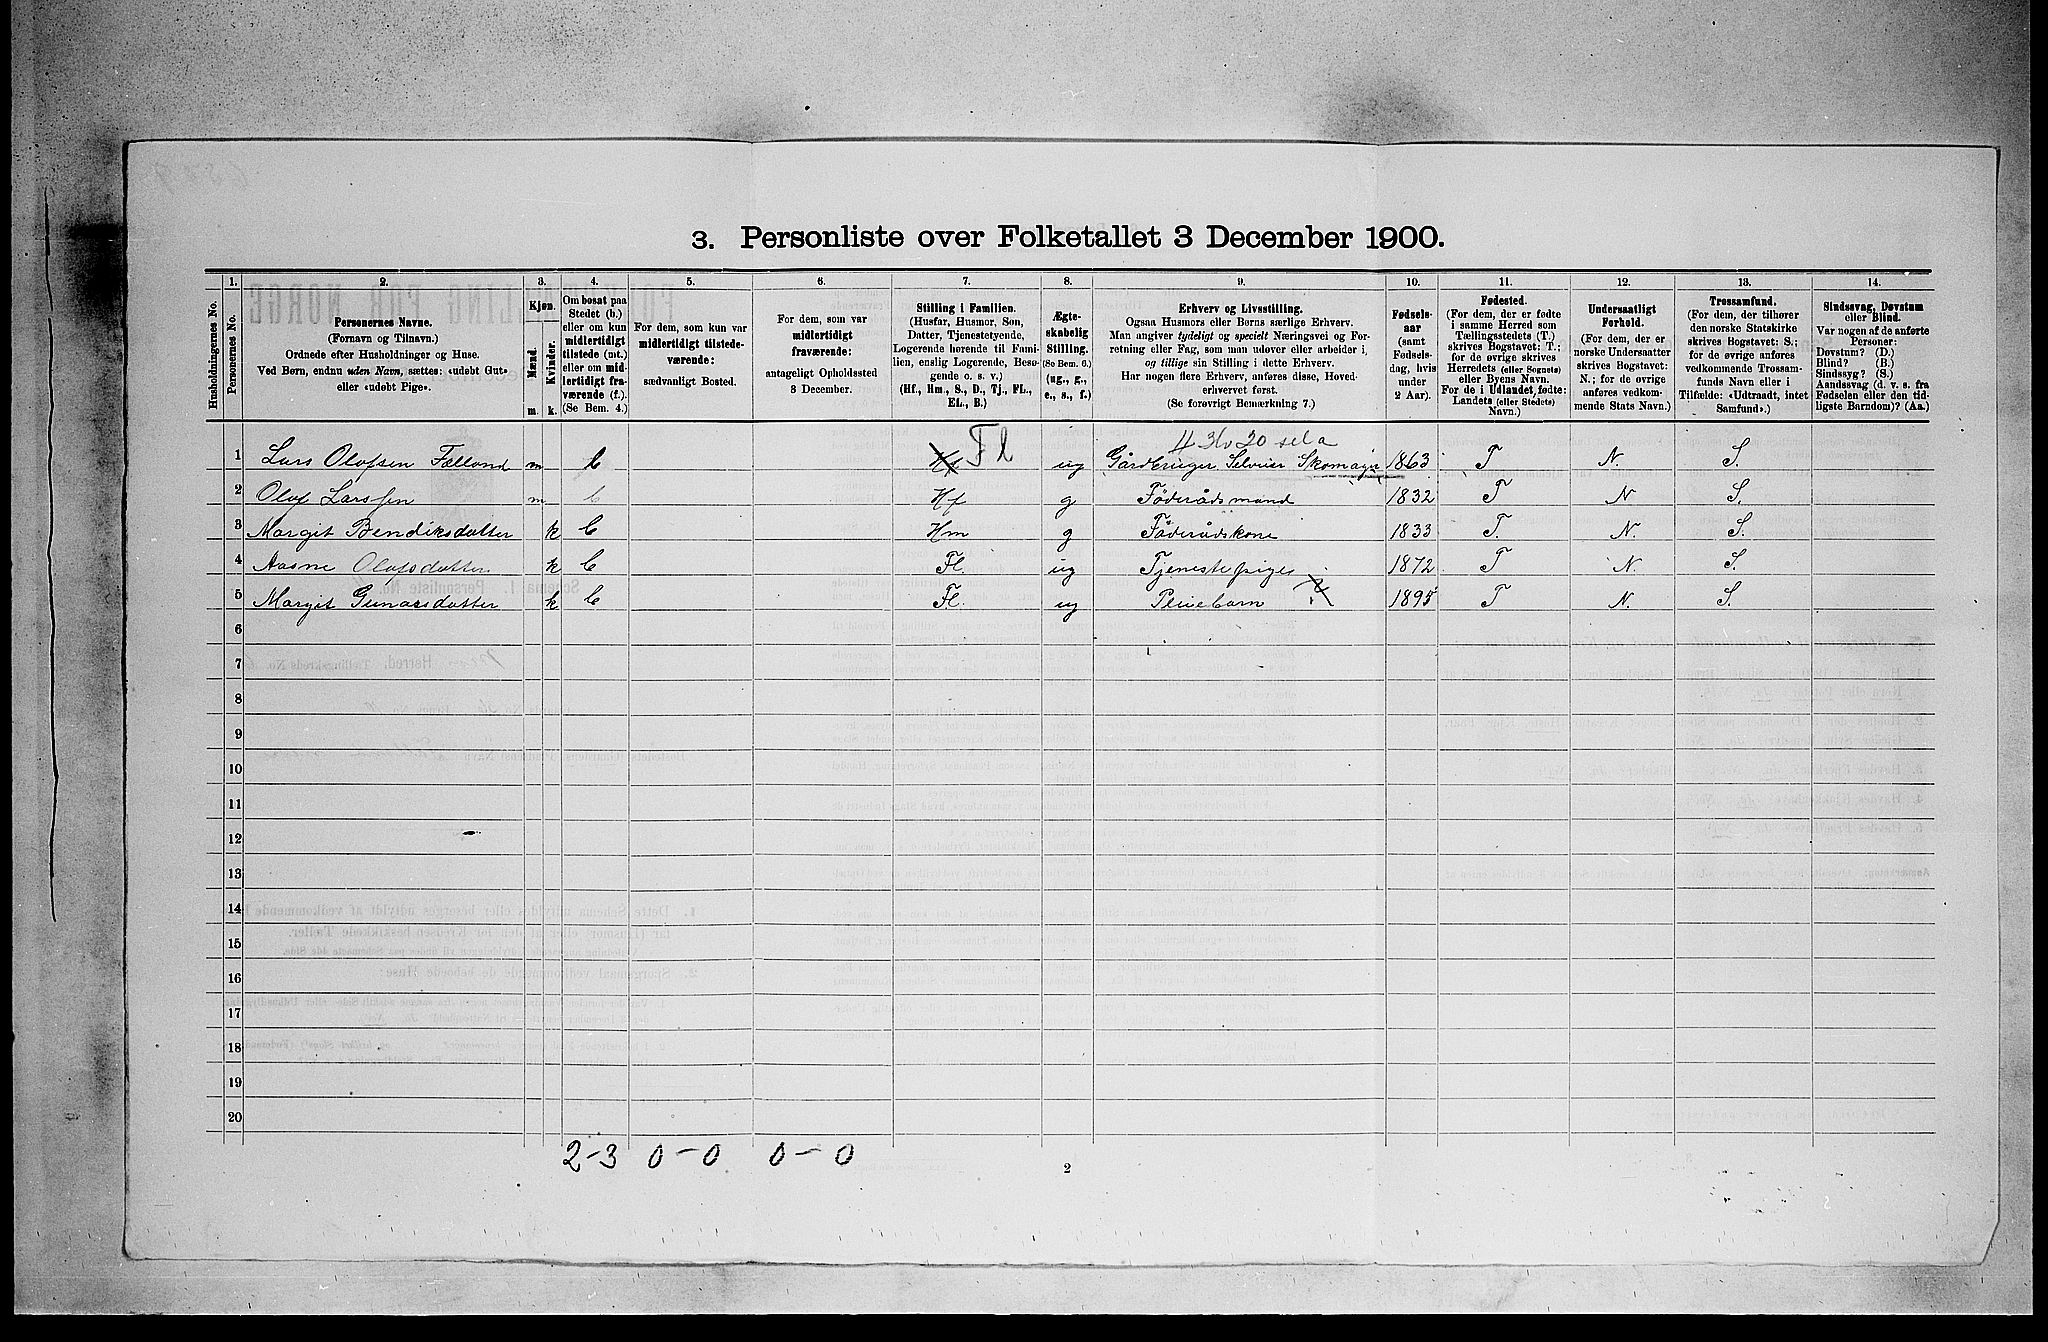 3. Personliste over Folketallet 3 December 1900.
Husholdningernes No.
1. Personernes No.
2.
Personernes Navne.
(Fornavn og Tilnavn.)
Ordnede efter Husholdninger og Huse.
Ved Børn, endnu uden Navn, sættes: «udøbt Gut»
eller «udøbt Pige».
3.
Kjøn.
Mænd. m.
Kvinder. k.
4.
Om bosat paa
Stedet (b.)
eller om kun
midlertidigt
tilstede (mt.)
eller om mid-
lertidigt fra-
værende (f.).
(Se Bem. 4.)
5.
For dem, som kun var
midlertidigt tilstede-
værende:
sædvanligt Bosted.
6.
For dem, som var
midlertidigt
fraværende:
antageligt Opholdssted
3 December.
7.
Stilling i Familien.
(Husfar, Husmor, Søn,
Datter, Tjenestetyende,
Logerende hørende til Fami-
lien, enslig Logerende, Besø-
gende o. s. v.)
(Hf., Hm., S., D., Tj., FL.,
EL., B.)
8.
Ægte-
skabelig
Stilling.
(Se Bem. 6.)
(ug., g.,
e., s., f.)
9.
Erhverv og Livsstilling.
Ogsaa Husmors eller Børns særlige Erhverv.
Man angiver tydeligt og specielt Næringsvei og For-
retning eller Fag, som man udøver eller arbeider i,
og tillige sin Stilling i dette Erhverv.
Har nogen flere Erhverv, anføres disse, Hoved-
erhvervet først.
(Se forøvrigt Bemærkning 7.)
10.
Fødsels-
aar
(samt
Fødsels-
dag, hvis
under
2 Aar).
11.
Fødested.
(For dem, der er fødte
i samme Herred som
Tællingsstedets (T.)
skrives Bogstavet: T.;
for de øvrige skrives
Herredets (eller Sognets)
eller Byens Navn.
For de i Udlandet, fødte:
Landets (eller Stedets)
Navn.)
12.
Undersaatligt
Forhold.
(For dem, der er
norske Undersaatter
skrives Bogstavet:
N.; for de øvrige
anføres vedkom-
mende Stats Navn.)
13.
Trossamfund.
(For dem, der tilhører
den norske Statskirke
skrives Bogstavet: S.;
for de øvrige anføres
vedkommende Trossam-
funds Navn eller i
Tilfælde: «Udtraadt, intet
Samfund».)
14.
Sindssvag, Døvstum
eller Blind.
Var nogen af de anførte
Personer:
Døvstum? (D.)
Blind? (B.)
Sindssyg? (S.)
Aandssvag (d. v. s. fra
Fødselen eller den tid-
ligste Barndom)? (Aa.)
1 Lars Olafsen Fælland m b Hf Fl ug Gårdbruger Selveier Skomager 1863 T N. S.
2 Olof Larssen m b Hf g Föderådsmand 1832 T N S.
3 Margit Bendiksdatter k b Hm g Föderådskone 1833 T. N. S.
4 Aasne Olafsdatter k b Fl. ug Tjenestepige 1872 T N. S.
5 Margit Gunarsdatter k b Fl. ug Pleiebarn 1895 T N. S.
6
7
8
9
10
11
12
13
14
15
16
17
18
19
20
2-3 0-0 0-0
2